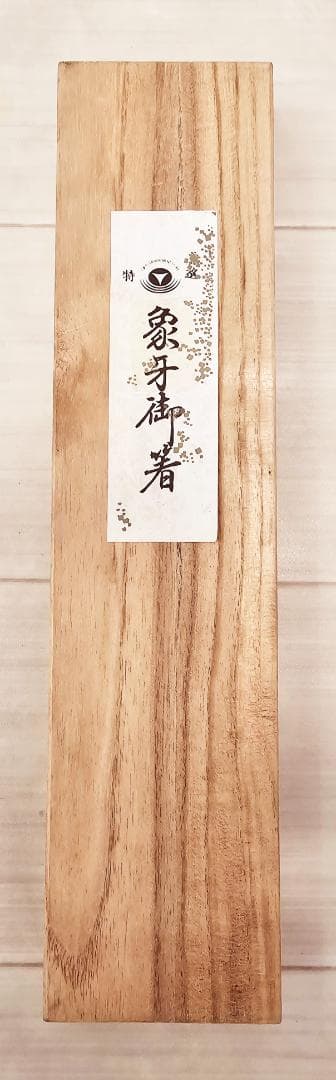 特選
象牙御箸